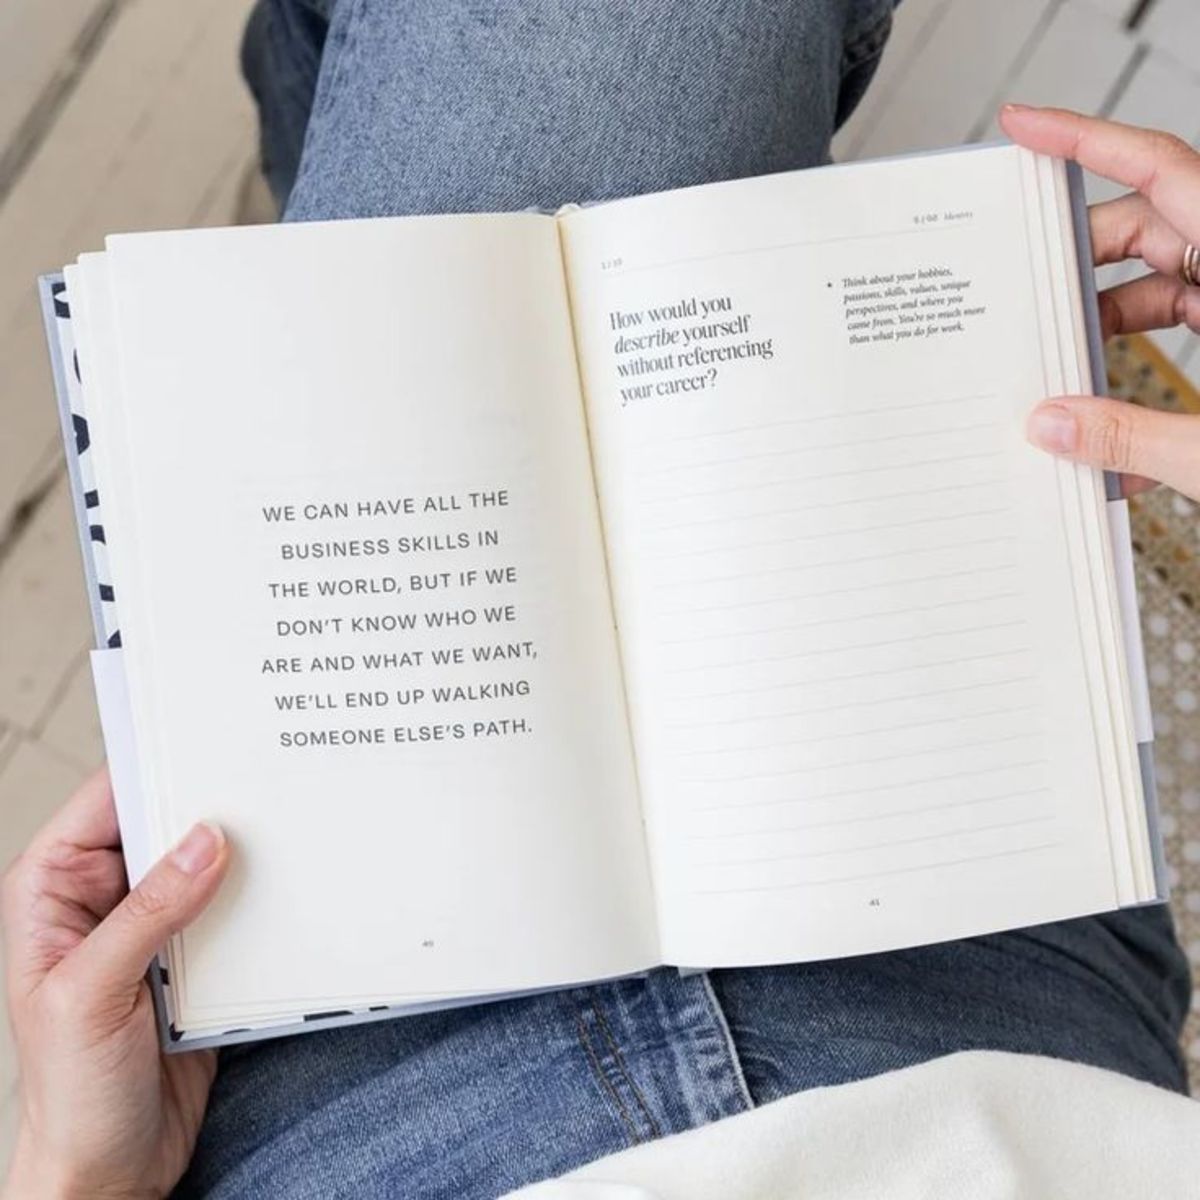 WE CAN HAVE ALL THE
BUSINESS SKILLS IN
THE WORLD, BUT IF WE
DON'T KNOW WHO WE
ARE AND WHAT WE WANT,
WE'LL END UP WALKING
SOMEONE ELSE'S PATH.
40
Identity
How would you
describe yourself
without referencing
your career?
• Think about your hobbies,
passions, skills, values, unique
perspectives, and where you
come from. You're so much more
than what you do for work.
41